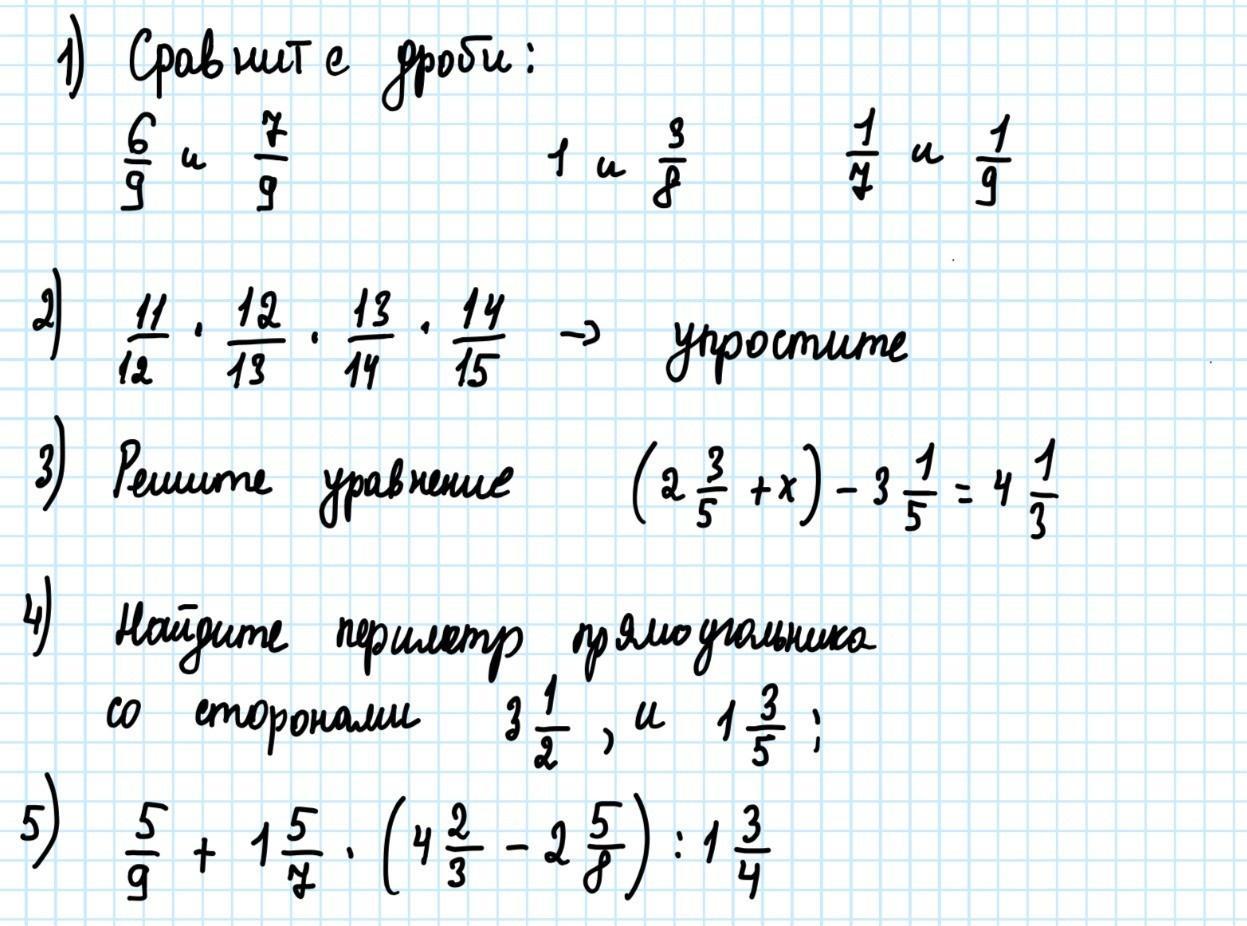 1) Сравните дроби:
6/9 и 7/9 1 и 3/8 1/7 и 1/9
2) 11/12 · 12/13 · 13/14 · 14/15 → упростите
3) Решите уравнение (2 3/5 + x) - 3 1/5 = 4 1/3
4) Найдите периметр прямоугольника
со сторонами 3 1/2, и 1 3/5;
5) 5/9 + 1 5/7 · (4 2/3 - 2 5/8) : 1 3/4